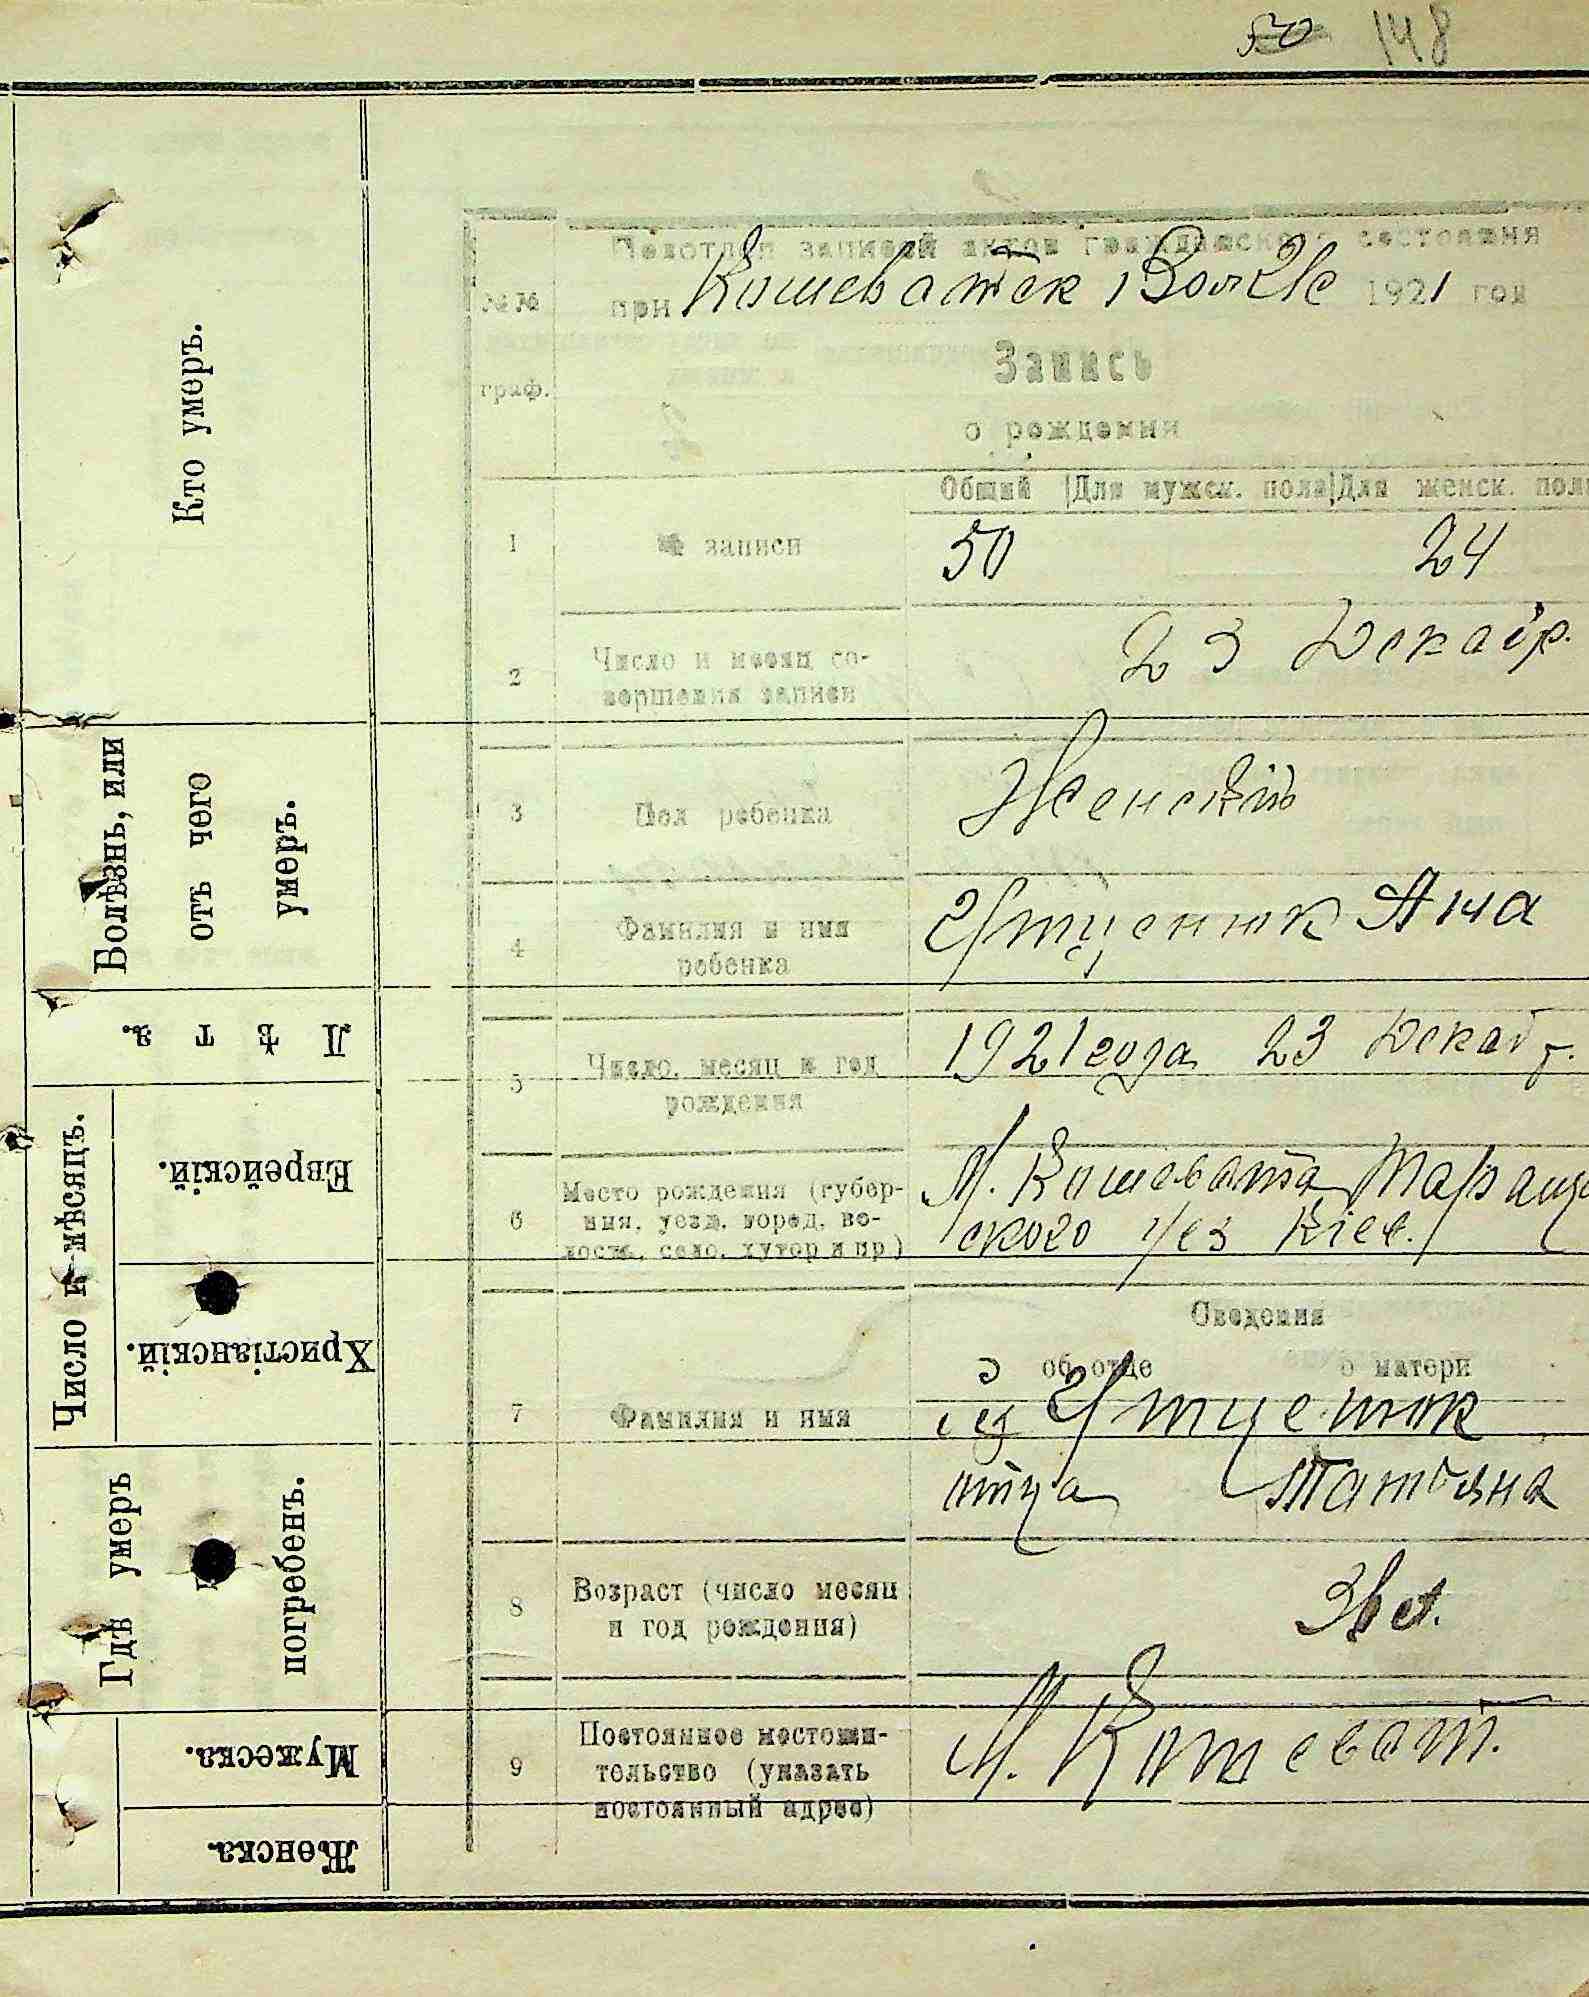 50 148
Кто умеръ.
Болѣзнь, или
отъ чего
умеръ.
Лѣта.
Число и мѣсяцъ.
Еврейскій.
Христіанскій.
Гдѣ умеръ
и
погребенъ.
Мужеска.
Женска.
№№
граф.
Подотдел записей актов гражданского состояния
при Кошеватск 1921 год
Запись
о рождении
Общий Для мужск. пола Для женск. пола
1 № записи 50 24
2 Число и месяц со-
вершения записи
23 Декабр.
3 Пол ребенка Женскій
4 Фамилия и имя
ребенка
Устценюк Ана
5 Число, месяц и год
рождения
1921 года 23 Декабр.
6 Место рождения (губер-
ния, уезд, город, во-
лость, село, хутор и пр)
М. Кошевата Таращан
ского Уез Кіев.
Сведения
об отце о матери
7 Фамилия и имя
Татьяна
8 Возраст (число месяц
и год рождения)
9 Постоянное местожи-
тельство (указать
постоянный адрес)
М. Кошеват.